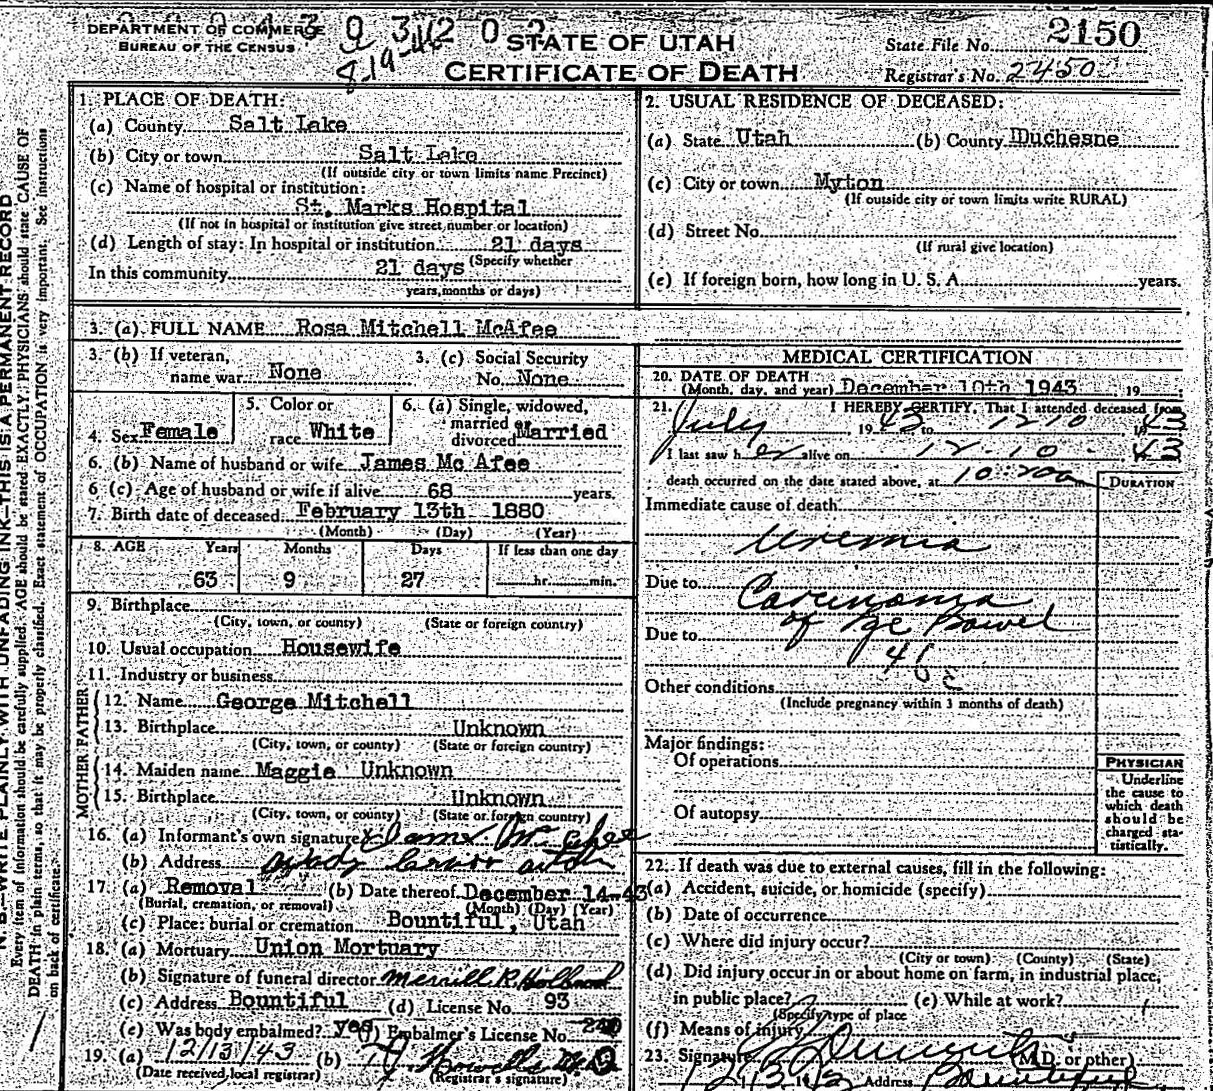 DEPARTMENT OF COMMERCE
BUREAU OF THE CENSUS
8-19-46
STATE OF UTAH
CERTIFICATE OF DEATH
State File No. 2150
Registrar's No. 2450
N. B.—WRITE PLAINLY, WITH UNFADING INK—THIS IS A PERMANENT RECORD
Every item of information should be carefully supplied. AGE should be stated EXACTLY. PHYSICIANS should state CAUSE OF
DEATH in plain terms, so that it may be properly classified. Exact statement of OCCUPATION is very important. See instructions
on back of certificate.
1. PLACE OF DEATH:
(a) County Salt Lake
(b) City or town Salt Lake
(If outside city or town limits name Precinct)
(c) Name of hospital or institution:
St. Marks Hospital
(If not in hospital or institution give street number or location)
(d) Length of stay: In hospital or institution 21 days
(Specify whether
In this community 21 days
years, months or days)
2. USUAL RESIDENCE OF DECEASED:
(a) State Utah (b) County Duchesne
(c) City or town Myton
(If outside city or town limits write RURAL)
(d) Street No.
(If rural give location)
(e) If foreign born, how long in U. S. A. years.
3. (a) FULL NAME Rosa Mitchell McAfee
3. (b) If veteran, name war None
3. (c) Social Security No. None
4. Sex Female
5. Color or race White
6. (a) Single, widowed, married or divorced Married
6. (b) Name of husband or wife James Mc Afee
6 (c) Age of husband or wife if alive 68 years.
7. Birth date of deceased February 13th 1880
(Month) (Day) (Year)
8. AGE Years Months Days If less than one day
63 9 27 hr. min.
9. Birthplace
(City, town, or county) (State or foreign country)
10. Usual occupation Housewife
11. Industry or business
FATHER
12. Name George Mitchell
13. Birthplace Unknown
(City, town, or county) (State or foreign country)
MOTHER
14. Maiden name Maggie Unknown
15. Birthplace Unknown
(City, town, or county) (State or foreign country)
16. (a) Informant's own signature x James McAfee
(b) Address
17. (a) Removal (b) Date thereof December 14-43
(Burial, cremation, or removal) (Month) (Day) (Year)
(c) Place: burial or cremation Bountiful, Utah
18. (a) Mortuary Union Mortuary
(b) Signature of funeral director Merrill R. Holbrook
(c) Address Bountiful (d) License No. 93
(e) Was body embalmed? yes Embalmer's License No.
19. (a) 12/13/43 (b)
(Date received local registrar) (Registrar's signature)
MEDICAL CERTIFICATION
20. DATE OF DEATH
(Month, day, and year) December 10th 1943 19
21. I HEREBY CERTIFY, That I attended deceased from
July 1943, to 12 10 1943
I last saw her alive on 12-10- 43
death occurred on the date stated above, at
DURATION
Immediate cause of death
Uremia
Due to Carcinoma
of the Bowel
Due to
Other conditions
(Include pregnancy within 3 months of death)
Major findings:
Of operations
Of autopsy
PHYSICIAN
Underline
the cause to
which death
should be
charged sta-
tistically.
22. If death was due to external causes, fill in the following:
(a) Accident, suicide, or homicide (specify)
(b) Date of occurrence
(c) Where did injury occur?
(City or town) (County) (State)
(d) Did injury occur in or about home on farm, in industrial place,
in public place? (e) While at work?
(Specify type of place
(f) Means of injury
23. Signature (M.D. or other)
Address Bountiful